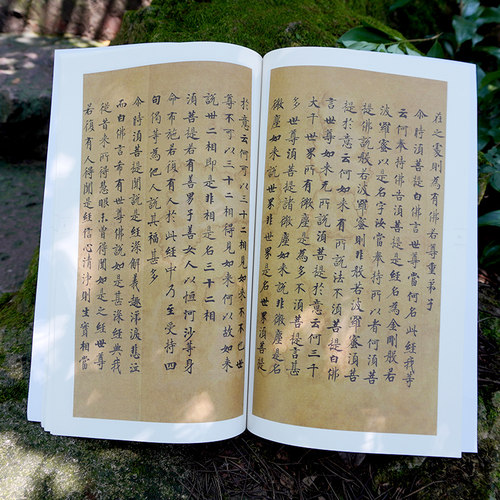 在之處則為有佛若尊重弟子
尒時須菩提白佛言世尊當何名此經我等
云何奉持佛告須菩提是經名為金剛般若
波羅蜜以是名字汝當奉持所以者何須菩
提佛說般若波羅蜜則非般若波羅蜜須菩
提於意云何如來有所說法不須菩提白佛
言世尊如來无所說須菩提於意云何三千
大千世界所有微塵是為多不須菩提言甚
多世尊須菩提諸微塵如來說非微塵是名
微塵如來說世界非世界是名世界須菩提
於意云何可以三十二相見如來不不也世
尊不可以三十二相得見如來何以故如來
說卅二相即是非相是名三十二相
須菩提若有善男子善女人以恒河沙等身
命布施若復有人於此經中乃至受持四
句偈等為他人說其福甚多
尒時須菩提聞說是經深解義趣涕淚悲泣
而白佛言希有世尊佛說如是甚深經典我
從昔來所得慧眼未曾得聞如是之經世尊
若復有人得聞是經信心清淨則生實相當